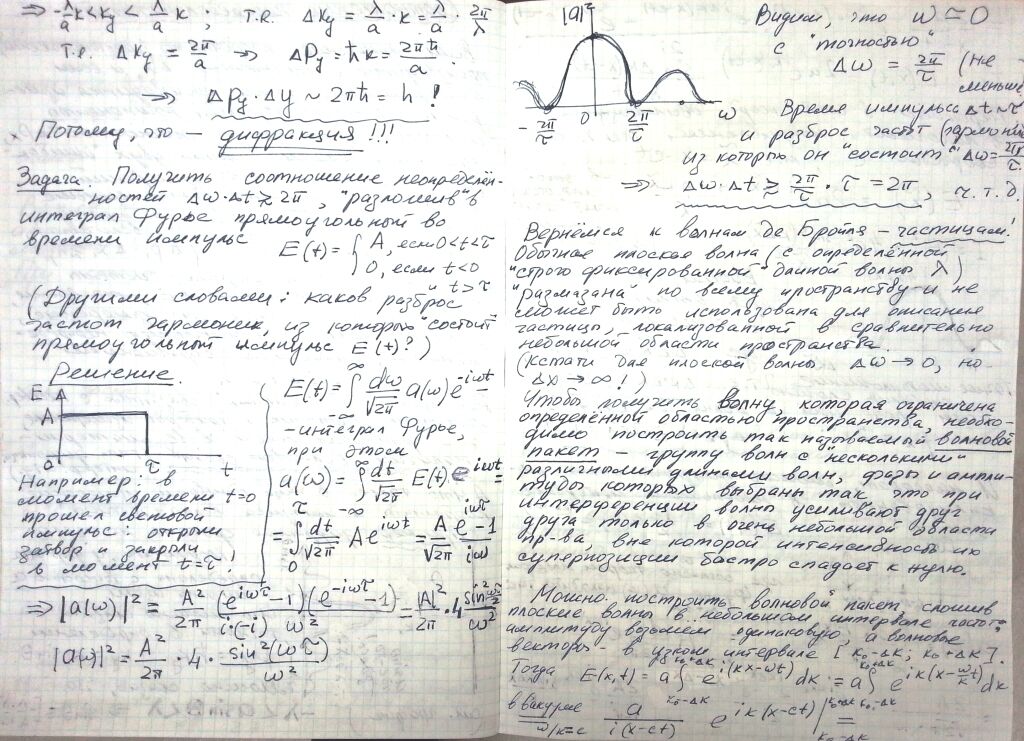 ⇒ -λ/a k < k_y < λ/a k ; т.е. Δk_y = λ/a · k = λ/a · 2π/λ
т.е. Δk_y = 2π/a ⇒ Δp_y = ħk = 2πħ/a.
⇒ Δp_y · Δy ~ 2πħ = h !
Потому, что – дифракция!!!
Задача. Получить соотношение неопределён-
ностей Δω·Δt ≳ 2π, "разложив" в
интеграл Фурье прямоугольный во
времени импульс
E(t) = { A, если 0<t<τ
0, если t<0
и t>τ
(Другими словами: каков разброс
частот гармоник, из которых "состоит"
прямоугольный импульс E(t)?)
Решение.
E
A
0 τ t
Например: в
момент времени t=0
прошел световой
импульс: открыли
затвор и закрыли
в момент t=τ!
E(t) = ∫_{-∞}^{∞} dω/√2π a(ω) e^{-iωt} –
– интеграл Фурье,
при этом
a(ω) = ∫_{-∞}^{∞} dt/√2π E(t) e^{iωt} =
= ∫_0^τ dt/√2π A e^{iωt} = A/√2π e^{iωτ}-1/iω
⇒ |a(ω)|² = A²/2π (e^{iωτ}-1)(e^{-iωτ}-1)/i·(-i) ω² = |A|²/2π · 4
|a(ω)|² = A²/2π · 4 · sin²(ωτ)/ω²
|a|²
-2π/τ 0 2π/τ ω
Видим, что ω ≃ 0
с "точностью"
Δω = 2π/τ (не
меньше
Время импульса Δt ~ τ
и разброс частот (гармоник
из которых он "состоит" Δω = 2π/τ
⇒ Δω·Δt ≳ 2π/τ · τ = 2π, ч.т.д.
Вернёмся к волнам де Бройля – частицам!
Обычная плоская волна (с определённой
"строго фиксированной" длиной волны λ)
"размазана" по всему пространству и не
может быть использована для описания
частицы, локализованной в сравнительно
небольшой области пространства.
(Кстати для плоской волны Δω → 0, но
Δx → ∞!)
Чтобы получить волну, которая ограничена
определённой областью пространства, необхо-
димо построить так называемый волновой
пакет – группу волн с несколькими
различными длинами волн, фазы и ампли-
туды которых выбраны так что при
интерференции волны усиливают друг
друга только в очень небольшой области
пр-ва, вне которой интенсивность их
суперпозиции быстро спадает к нулю.
Можно построить волновой пакет, сложив
плоские волны в небольшом интервале частот,
амплитуду возьмем одинаковую, а волновые
векторы – в узком интервале [k₀-Δk; k₀+Δk].
Тогда E(x,t) = a∫_{k₀-Δk}^{k₀+Δk} e^{i(kx-ωt)} dk = a∫_{k₀-Δk}^{k₀+Δk} e^{ik(x-ω/k t)} dk
в вакууме ω/k=c a/i(x-ct) e^{ik(x-ct)} |_{k₀-Δk}^{k₀+Δk} =